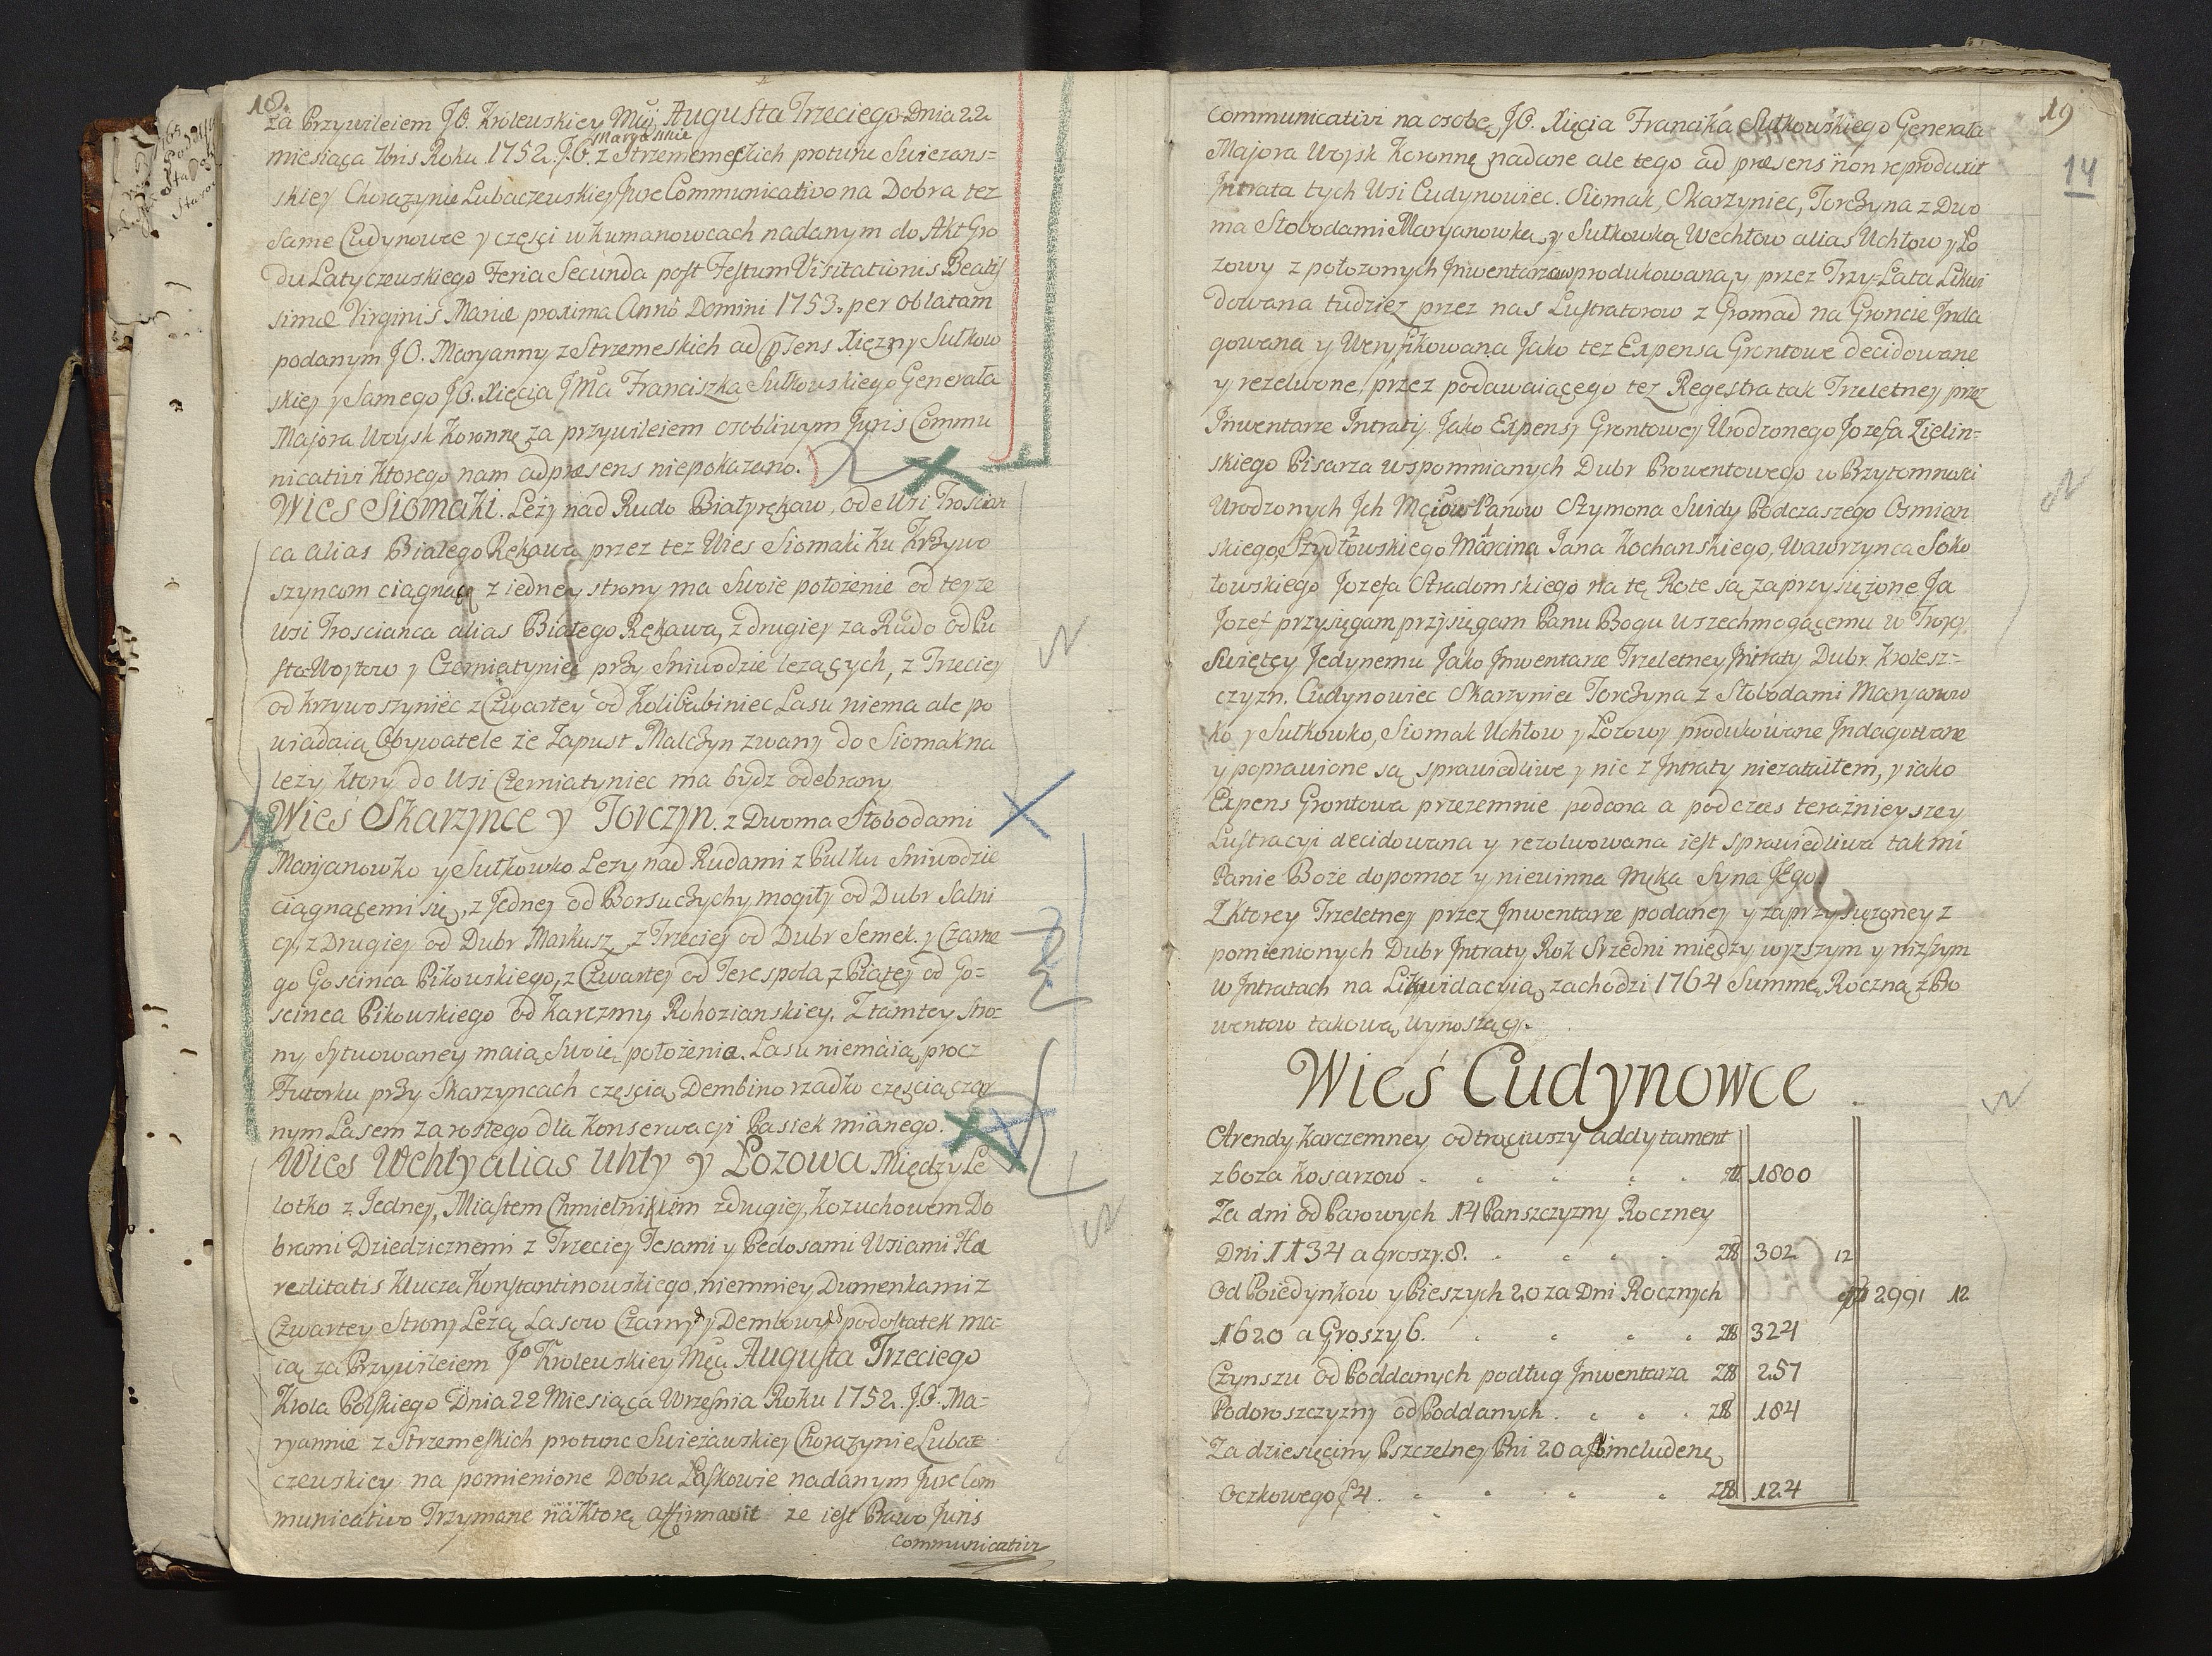 18.
za Przywileiem JO. Krolewskiey Mci Augusta Trzeciego Dnia 22
miesiąca 7bris Roku 1752. J.O. Maryannie z Strzemeskich protunc Swiezans=
skiey Chorązynie Lubaczewskiey Jure Communicativo na Dobra tez
same Cudynowce y częsci w Kumanowcach nadanym do Akt Gro
du Latyczewskiego Feria Secunda post Festum Visitationis Beatis
simæ Virginis Mariæ proxima Anno Domini 1753. per oblatam
podanym JO. Maryanny z Strzemeskich ad psens Xięzny Sułkow
skiey y Samego JO. Xięcia JMci Franciszka Sułkowskiego Generała
Majora Woysk Koronnę za przywileiem osobliwym Juris Commu
nicativi ktorego nam ad præsens niepokazano.
Wies Siomaki. Leży nad Rudo Białyrękaw, od Wsi Trościan
ca alias Białego Rękawa przez tez Wies Siomaki Ku Krzywo
szyncom ciągnącą z iedney strony ma Swoie położenie od teyze
wsi Troscianca alias Białego Rękawa, z drugiey za Rudo od Pu
sto Woytow y Czerniatyniec przy Sniwodzie lezących, z Trzeciey
od Krzywoszyniec z Czwartey od Kolibabiniec Lasu niema ale po
wiadaią Obywatele że Zapust Malczyn zwany do Siomak na
leży ktory do Wsi Czerniatyniec ma bydz odebrany
Wieś Skarzynce y Torczyn. z Dwoma Słobodami
Maryanowko y Sułkowko Lezy nad Rudami z Pulku Sniwodzie
ciągnącemi się, z Jedney od Borsuczychy mogiły od Dubr Salni
cy, z Drugiey od Dubr Markusz, z Trzeciey od Dubr Semek. y Czarne
go Goscinca Pikowskiego, z Czwartey od Terespola, z Piątey od Go=
scinca Pikowskiego od Karczmy Rohozianskiey. Z tamtey stro=
ny Sytuowaney maią Swoię położenia. Lasu niemaią procz
Futorku przy Skarzyncach częscią Dembino rzadko częscią czar
nym Lasem zarostego dla Konserwacyi Pasiek mianego.
Wies Wchły alias Uhły y Łozowa Między Le
lotko z Jedney, Miastem Chmielnikiem z drugiey, Kozuchowem Do
brami Dziedzicznemi z Trzeciey Tesami y Pedosami Wsiami Hæ
reditatis Klucza Konstantinowskiego, niemniey Dumenkami z
Czwartey Strony Leżą Lasow Czarny y Dembowy podostatek ma=
ią za Przywileiem Jo Krolewskiey Mci Augusta Trzeciego
Krola Polskiego Dnia 22 Miesiąca Września Roku 1752. J.O. Ma=
ryannie z Strzemeskich protunc Swieżawskiey Chorązynie Lubac
czewskiey na pomienione Dobra Łaskowie nadanym Jure Com
municativo Trzymane na ktorę affirmavit ze iest Prawo Juris
Communicativi
19
14
Communicativi na osobę JO. Xięcia Franciká Sułkowskiego Generała
Majora Woysk Koronnę nadane ale tego ad præsens non reproduxit
Intrata tych Wsi Cudynowiec. Siomak, Skarzyniec, Torczyna z Dwo
ma Słobodami Maryanowką y Sułkowką Wechłow alias Uchłow y Ło
zowy z położonych Inwentarzow produkowana, y przez Trzy=Lata Likwi
dowana tudziez przez nas Lustratorow z Gromad na Groncie Inda
gowana y Weryfikowana Jako tez Expensa Grontowe decidowane
y rezolwone, przez podawaiącego tez Regestra tak Trzeletney przez
Inwentarze Intraty Jako Expensy Grontowey Urodzonego Jozefa Zielin=
skiego Pisarza wspomnianych Dubr Prowentowego w Przytomności
Urodzonych Ich Mciow Panow Szymona Swidy Podczaszego Osmian
skiego, Szydłowskiego Marcina Jana Kochanskiego, Wawrzynca Soko
łowskiego Jozefa Stradomskiego na tę Rotę są zaprzysiężone Ja
Jozef przysięgam przysięgam Panu Bogu wszechmogącemu w Troycy
Swiętęy Jedynemu Jako Inwentarze Trzeletney Intraty Dubr Krolesz=
czyzn. Cudynowiec Skarzyniec Torczyna z Słobodami Maryanow
ko y Sułkowko, Siomak Uchłow y Łozowy produkowane Indagowane
y poprawione są sprawiedliwe y nic z Intraty niezataiłem, y iako
Expens Grontowa przezemnie podana a podczas teraźnieyszey
Lustracyi decidowana y rezolwowana iest sprawiedliwa tak mi
Panie Boże dopomoz y niewinna Męka Syna Jego.
Z ktorey Trzeletney przez Inwentarze podaney y zaprzysięzoney z
pomienionych Dubr Intraty Rok Srzedni między wyzszym y nizszym
w Intratach na Likwidacyią zachodzi 1764 Summę Roczną z Pro
wentow takową wynoszący.
Wieś Cudynowce
Arendy Karczemney odtrąciwszy addytament
zboza Kosarzow . . . . . zł 1800
Za dni od Parowych 14 Panszczyzny Roczney
Dni 1134 a groszy. 8. . . . . zł 302 12
Od Poiedynkow y Pieszych 20 za Dni Rocznych
zł 2991 12
1620 a Groszy 6. . . . . zł 324
Czynszu od Poddanych podług Inwentarza zł 257
Podoroszczyzny od Poddanych . . . . zł 184
Za dziesięciny Pszczelney Pni 20 a includenę
Oczkowego f 4. . . . . zł 124